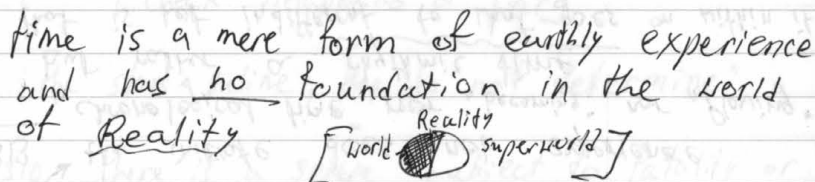 time is a mere form of earthly experience
and has no foundation in the world
of Reality
Reality
[world superworld]